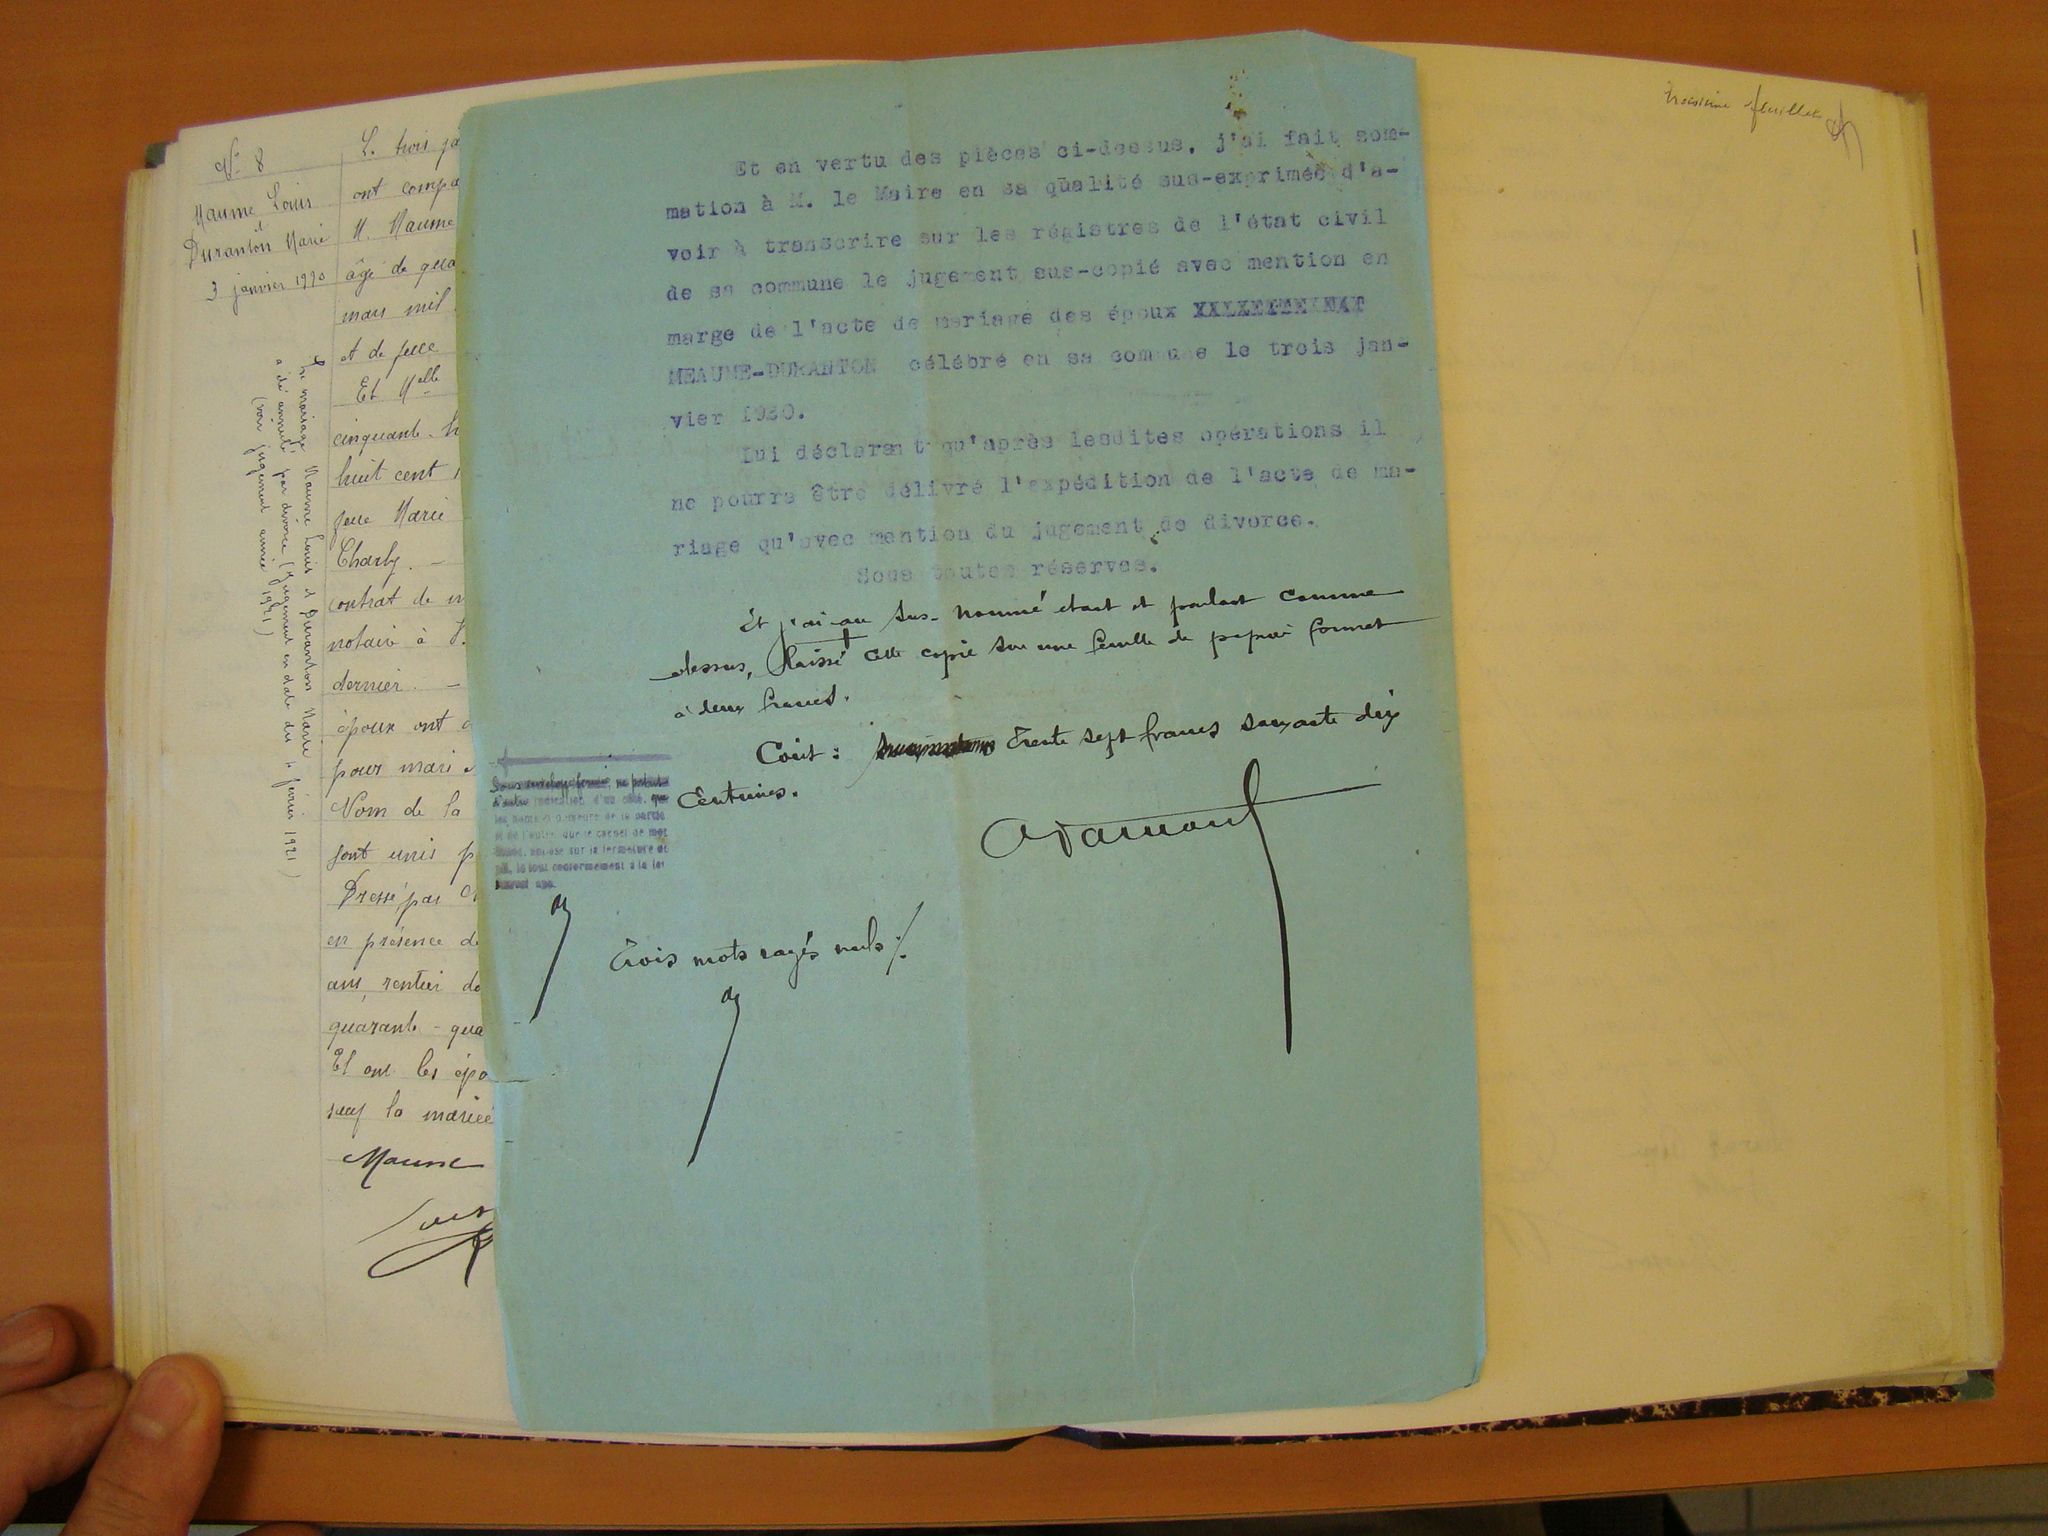 N° 8
Maume Louis
et
Duranton Marie
3 janvier 1920
Le mariage Maume Louis et Duranton Marie
a été annulé par divorce (jugement en date du 4 février 1921)
(voir jugement année 1921)
L. trois ja
ont compa
M. Maume
âgé de qua
mars mil
et de feue
Et Melle
cinquante-h
huit cent
feue Marie
Charly. -
contrat de m
notaire à
dernier. -
époux ont
pour mari
Nom de la
sont unis p
Dressé par
en présence de
ans, rentier de
quarante-qua
Et ont les épo
sauf la mariée
Maume
Et en vertu des pièces ci-dessus, j'ai fait som-
mation à M. le Maire en sa qualité sus-exprimée d'a-
voir à transcrire sur les régistres de l'état civil
de sa commune le jugement sus-copié avec mention en
marge de l'acte de mariage des époux
MEAUME-DURANTON célébré en sa commune le trois jan-
vier 1920.
Lui déclarant qu'après lesdites opérations il
ne pourra être délivré l'expédition de l'acte de ma-
riage qu'avec mention du jugement de divorce.
Sous toutes réserves.
Et j'ai au sus-nommé étant et parlant comme
dessus, laissé cette copie sur une feuille de papier format
à deux francs.
Coût : Trente sept francs soixante dix
Centimes.
Sous enveloppe fermée, ne portant
d'autre indication d'un côté, que
les noms et demeure de la partie
et de l'autre, que le cachet de mon
étude, apposé sur la fermeture du
pli, le tout conformement à la loi
Trois mots rayés nuls ./.
troisième feuillet